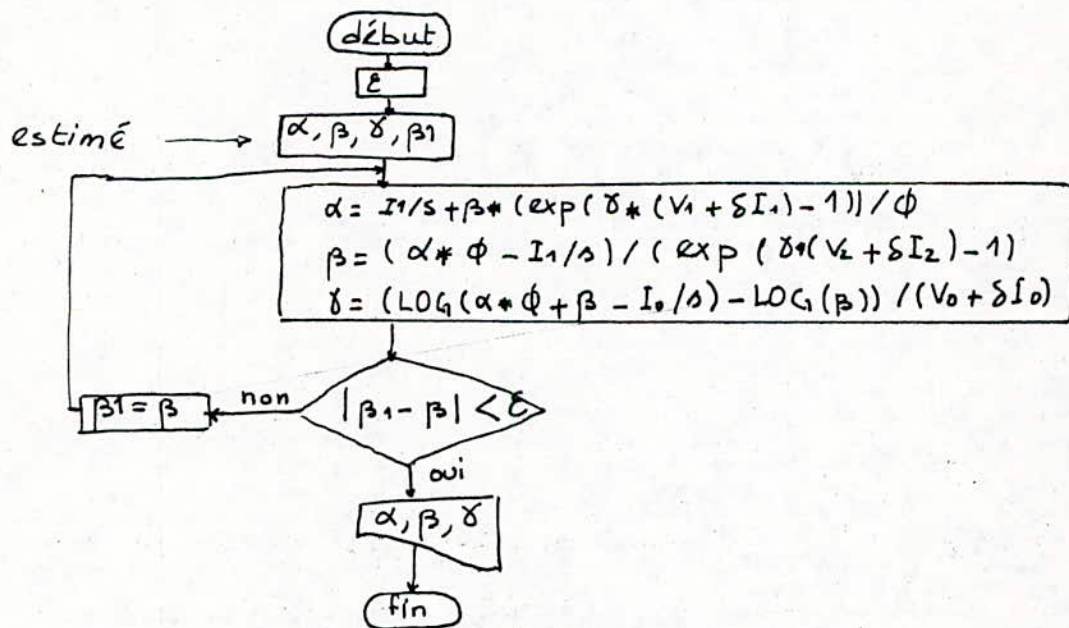 début
ε
estimé
α, β, γ, β1
α = I1/s + β* (exp(γ* (V1 + δI1) - 1)) / Φ
β = (α* Φ - I1/s) / (exp (γ*(V2 + δI2) - 1)
γ = (LOG(α* Φ + β - I0/s) - LOG(β)) / (V0 + δI0)
β1 = β
non
|β1 - β| < ε
oui
α, β, γ
fin